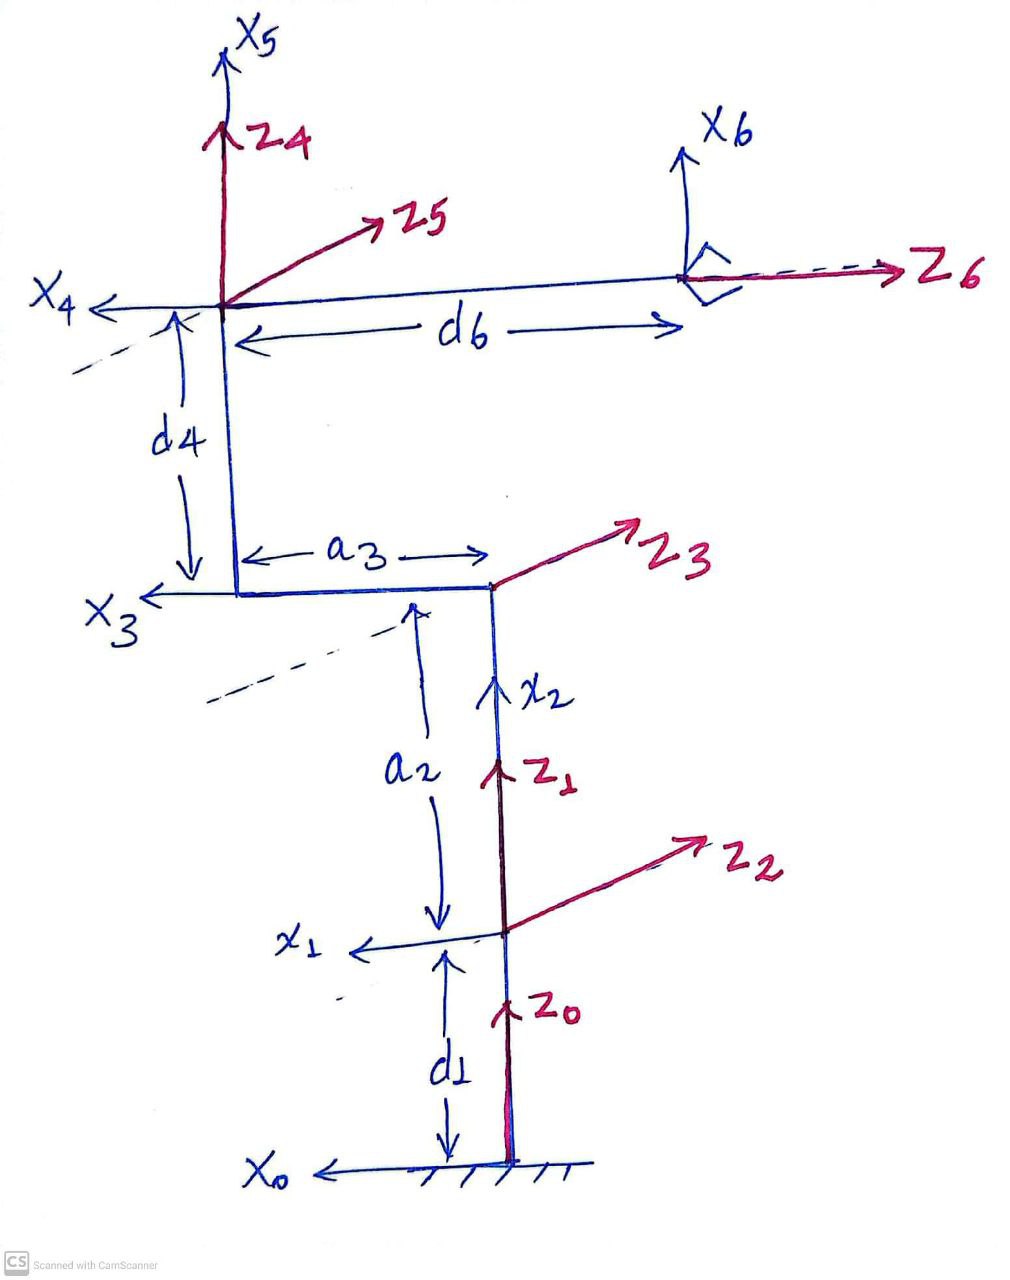 X5
Z4
X6
Z5
X4
Z6
d6
d4
a3
Z3
X3
x2
a2
Z1
Z2
x1
Z0
d1
X0
CS Scanned with CamScanner